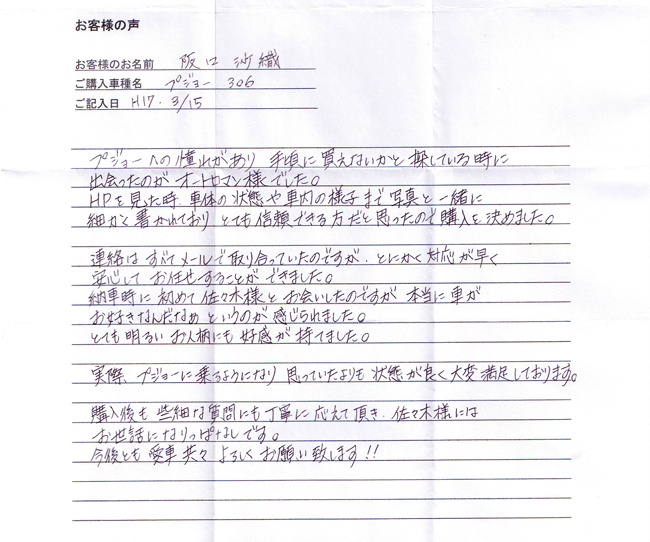 お客様の声
お客様のお名前 阪口 沙織
ご購入車種名 プジョー 306
ご記入日 H17. 3/15
プジョーへの憧れがあり 手頃に買えないかと探している時に
出会ったのが オートロマン様でした。
HPを見た時 車体の状態や車内の様子まで写真と一緒に
細かく書かれており とても信頼できる方だと思ったので購入を決めました。
連絡はすべてメールで取り合っていたのですが、とにかく対応が早く
安心して お任せすることができました。
納車時に初めて佐々木様とお会いしたのですが 本当に車が
お好きなんだなぁ というのが感じられました。
とても明るいお人柄にも好感が持てました。
実際、プジョーに乗るようになり 思っていたよりも状態が良く大変満足しております。
購入後も 些細な質問にも丁寧に応えて頂き、佐々木様には
お世話になりっぱなしです。
今後とも愛車共々 よろしくお願い致します!!